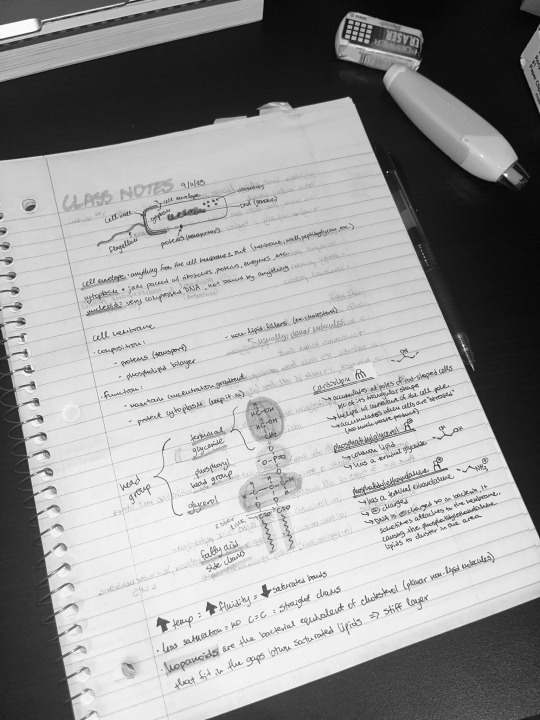 ERASER
CLASS NOTES 9/11/23
cell envelope
cell wall
cytoplasm
ribosomes
DNA
flagellum
proteins (transporters)
cell envelope: anything from the cell membrane, out (membrane, wall, peptidoglycan, etc.)
cytoplasm: jam packed w/ ribosomes, proteins, enzymes, etc
nucleoid: very compressed DNA, not bound by anything
cell membrane
• composition:
- proteins (transport)
- phospholipid bilayer
- non-lipid fillers (ex: cholesterol)
↳ usually planar molecules
• function:
- maintain concentration gradient
- protect cytoplasm (keep it in)
head group
terminal glyceride
phosphoryl head group
glycerol
ester link
fatty acid side chains
cardiolipin
↳ accumulates at poles of rod-shaped cells
b/c of its triangular shape
↳ helps w/ curvature of the cell pole
↳ accumulates when cells are "stressed"
phosphatidylglycerol
↳ common lipid
↳ has a terminal glycerol
OH
phosphatidylethanolamine
↳ has a terminal ethanolamine
↳ ⊕ charged
↳ DNA is ⊖ charged so in bacteria, it
sometimes attaches to the membrane,
causing the phosphatidylethanolamine
lipids to cluster in one area
⬆ temp = ⬆ fluidity = ⬇ saturated bonds
• less saturation = no C=C = straight chains
hopanoids are the bacterial equivalent of cholesterol (planar non-lipid molecules)
that fit in the gaps btwn saturated lipids ⇒ stiff layer